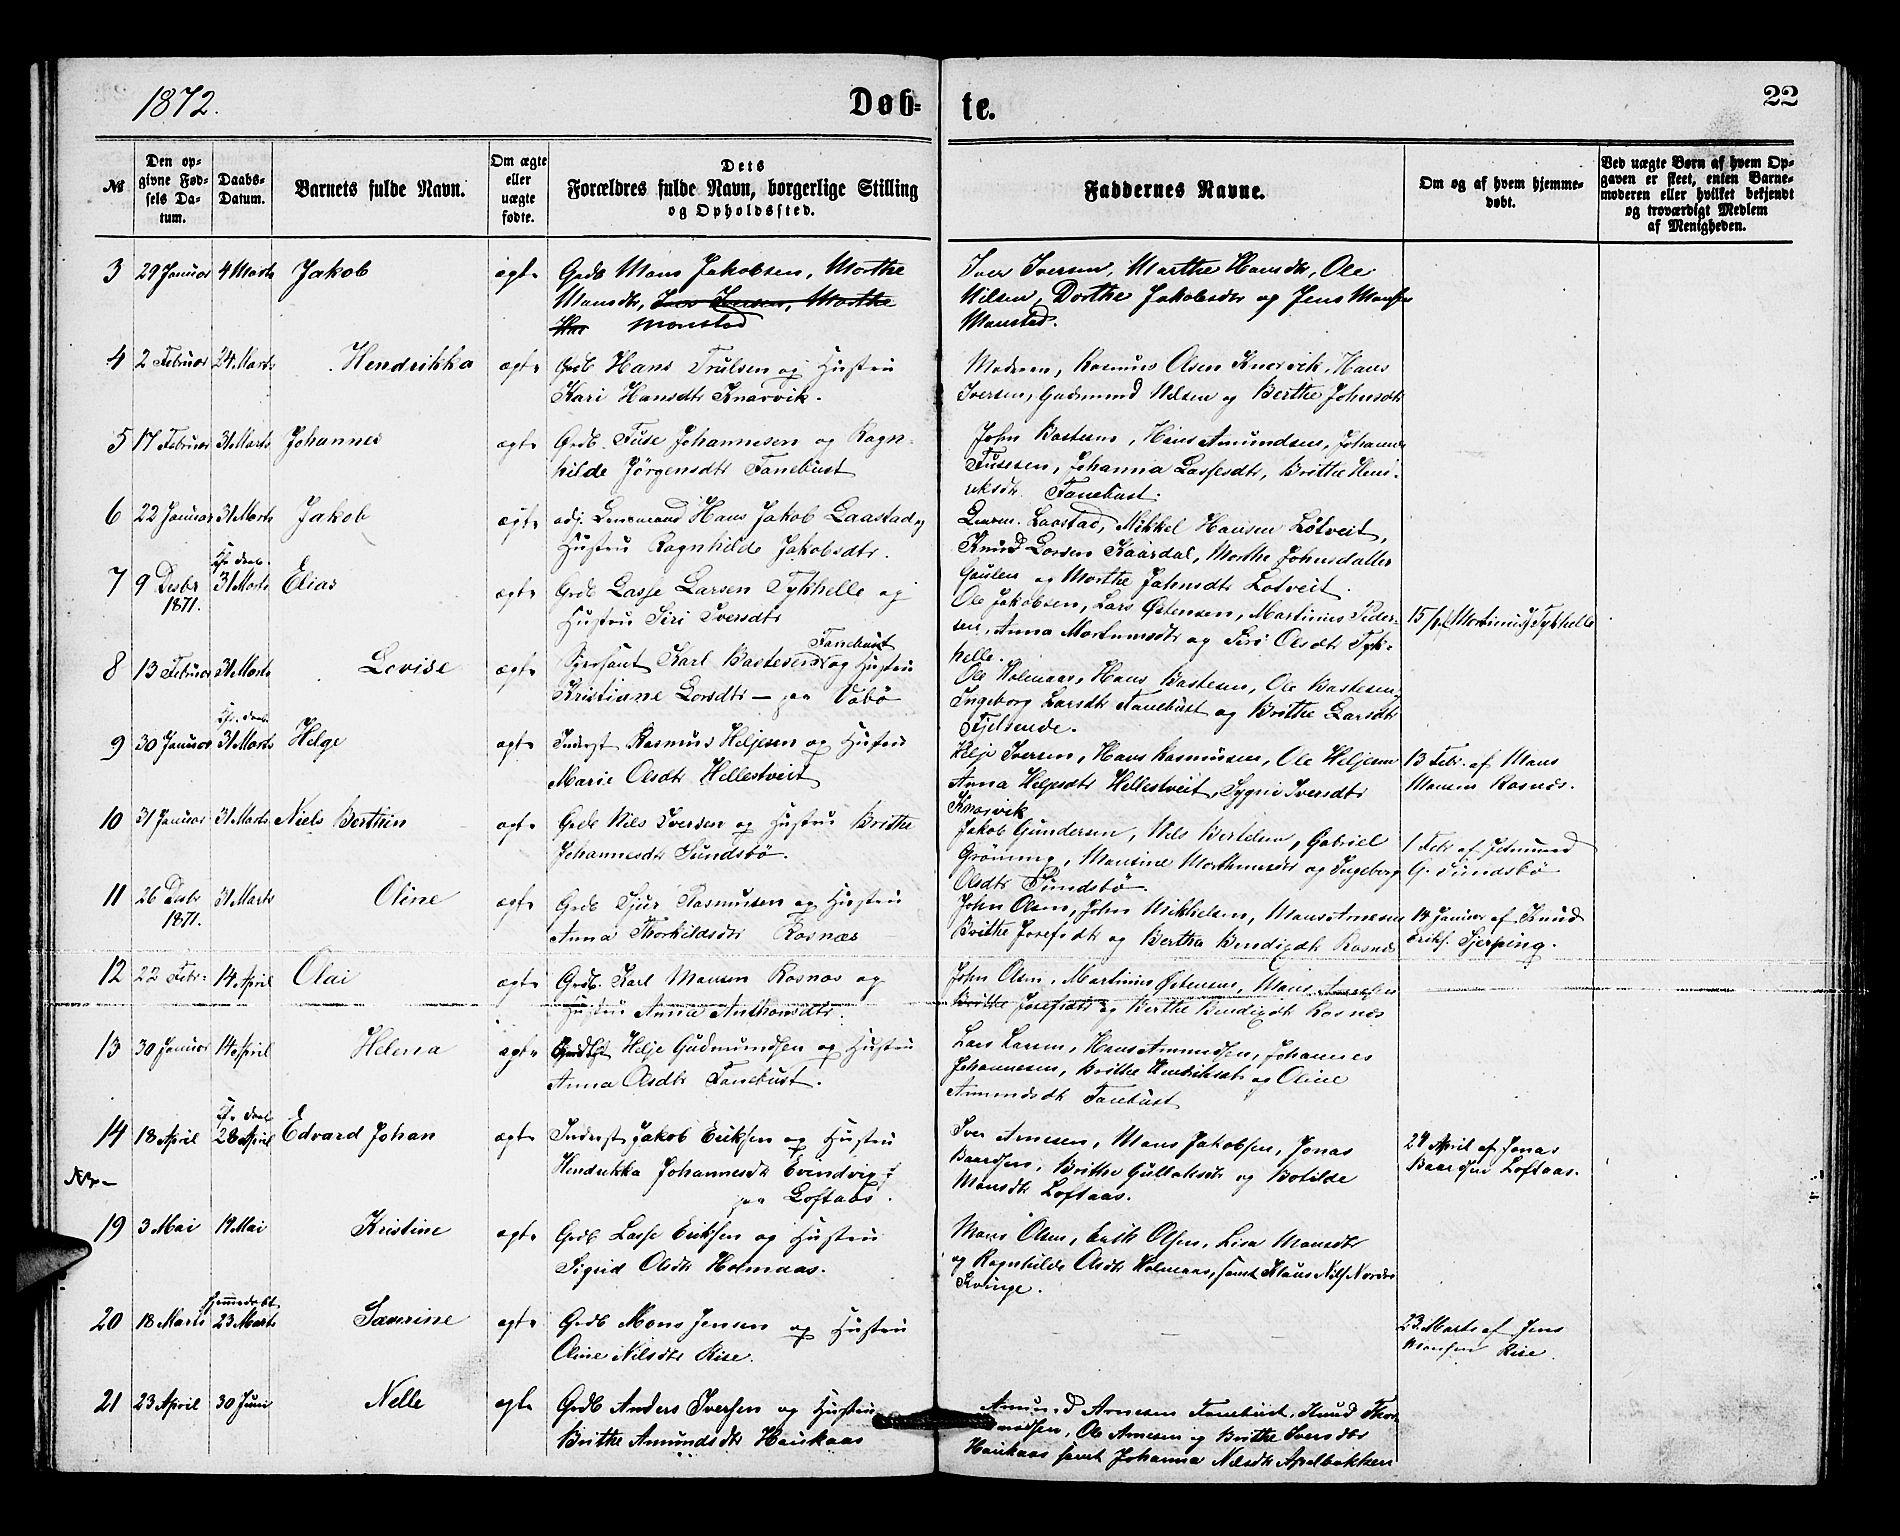 1872.
Døb-
te.
22
№
Den op-
givne Fød-
sels Da-
tum.
Daabs-
Datum.
Barnets fulde Navn.
Om ægte
eller
uægte
fødte.
Dets
Forældres fulde Navn, borgerlige Stilling
og Opholdssted.
Faddernes Navne.
Om og af hvem hjemme-
døbt.
Ved uægte Børn af hvem Op-
gaven er skeet, enten Barne-
moderen eller hvilket bekjendt
og troværdigt Medlem
af Menigheden.
3 29 Januar 4 Marts Jakob ægte Grdb Mons Jakobsen, Marthe
Monsdtr, Iver Iversen, Marthe
Han Monstad
Iver Iversen, Marthe Hansdtr, Ole
Nilsen, Dorthe Jakobsdtr og Jens Monsen
Monstad.
4 2 Februar 24 Marts Hendrikka ægte Grdb Hans Trulsen og Hustru
Kari Hansdtr Knarvik.
Moderen, Rasmus Olsen Knarvik, Hans
Iversen, Gudmund Nilsen og Berthe Johnsdtr
5 17 Februar 31 Marts Johannes ægte Grdb. Fuse Johannesen og Ragn-
hilde Jörgensdtr Tanebust
John Bastesen, Hans Amundsen, Johannes
Fusesen, Johanna Lassesdtr, Brithe Hen-
riksdtr Tanebust.
6 22 Januar 31 Marts Jakob ægte adj. Lensmand Hans Jakob Laastad og
Hustru Ragnhilde Jakobsdtr.
Lensm. Laastad, Mikkel Hansen Løtveit,
Knud Larsen Kaardal, Marthe Johnsdatter
Gaulen og Marthe Johnsdtr Lotveit.
7 9 Desbr
1871.
31 Marts Elias ægte Grdb Lasse Larsen Tykhelle og
Hustru Siri Iversdtr
Ole Jakobsen, Lars Østensen, Martinus Peder-
sen, Anna Martinusdtr og Siri Olsdtr Tyk-
helle.
Martinus Tykhelle
8 13 Februar 31 Marts Lovise ægte Sjersant Karl Bastesen Tanebust og Hustru
Kristiane Larsdtr — paa Vabø
Ole Holmaas, Hans Bastesen, Ole Bastesen,
Ingeborg Larsdtr Tanebust og Brithe Larsdtr
Fjelsende.
9 30 Januar 31 Marts Helge ægte Inderst Rasmus Heljesen og Hustru
Marie Olsdtr Hellestveit
Helje Iversen, Hans Rasmussen, Ole Heljesen
Anna Heljesdtr Hellestveit, Sygni Iversdtr
Knarvik
13 Febr. af Mons
Monsen Rosnes.
10 31 Januar 31 Marts Niels Berthin ægte Grdb Nils Iversen og Hustru Brithe
Johannesdtr Sundsbö.
Jakob Gundersen, Nils Bertelsen, Gabriel
Grönning, Monsine Marthinusdtr og Ingeborg
Olsdtr Sundsbö
1 Febr af
G. Sundsbö
11 26 Desbr
1871.
31 Marts Oline ægte Grdb Sjur Rasmusen og Hustru
Anna Thorkildsdtr Rosnæs
John Olsen, John Mikkelsen, Mons Arnesen
Brithe Josefsdtr og Bertha Bendixdtr Rosnæs
14 Januar af Knud
Eriks. Sjerping.
12 22 Febr. 14 April Olai ægte Grdb. Karl Monsen Rosnæs og
Hustru Anna Anthonsdtr.
John Olsen, Martinus Østensen, Mons Arnesen
Brithe Josefsdtr og Berthe Bendixdtr Rosnæs
13 30 Januar 14 April Helena ægte Helje Gudmundsen og Hustru
Anna Olsdtr Tanebust.
Lars Larsen, Hans Amundsen, Johannes
Johannesen, Brithe Henriksdtr og Oline
Amundsdtr Tanebust
14 18 April 28 April Edvard Johan ægte Inderst Jakob Eriksen og Hustru
Hendrikka Johannesdtr Evindvig
paa Loftaas.
Iver Arnesen, Mons Jakobsen, Jonas
Baardsen, Brithe Gullaksdtr og Botilde
Monsdtr Loftaas.
24 April af Jonas
Baardsen Loftaas.
19 3 Mai 19 Mai Kristine ægte Grdb Lasse Eriksen og Hustru
Sigrid Olsdtr Holmaas.
Mons Olsen, Erik Olsen, Lisa Monsdtr
og Ragnhilde Olsdtr Holmaas, samt Klaus Nils. Nordre
Kvinge.
20 18 Marts Hjemmedøbt
23 Marts Saverine ægte Grdb Mons Jensen og Hustru
Oline Nilsdtr Rise.
23 Marts af Jens
Monsen Rise.
21 23 April 30 Juni Nelle ægte Grdb Anders Iversen og Hustru
Brithe Amundsdtr Haukaas
Amund Arnesen Tanebust, Knud
Ole Arnesen og Brithe Iversdtr
Haukaas samt Johanna Nilsdtr Apelbakken